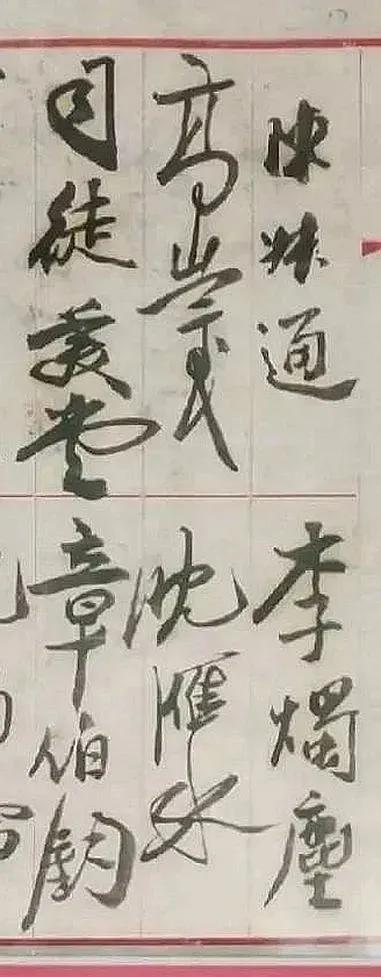 陳叔通
高崇民
司徒美堂
李燭塵
沈雁冰
章伯鈞